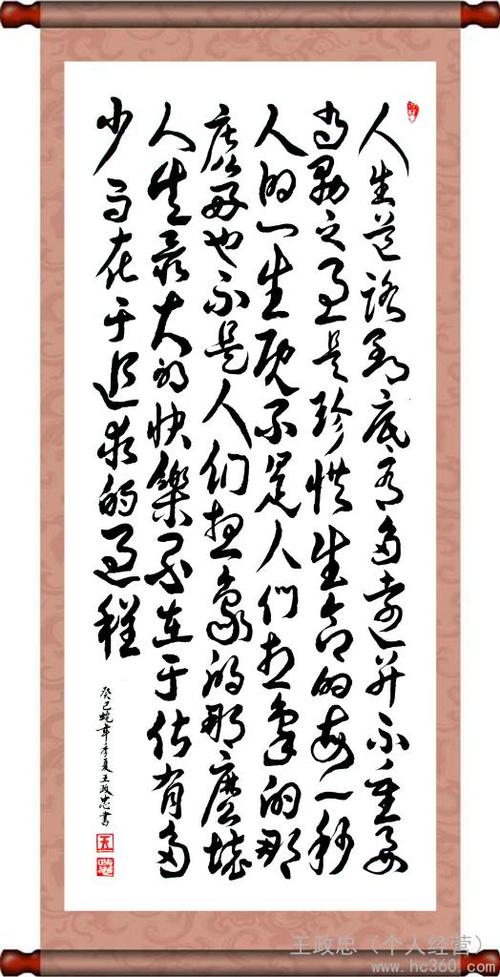 人生道路到底有多遠并不重要
当务之急是珍惜生命的每一秒
人的一生既不是人们想象的那
麽好也不是人们想象的那麽壞
人生最大的快樂不在于佔有多
少而在于追求的过程
癸巳蛇年季夏王政忠書
王政忠（个人经营）
www.hc360.com